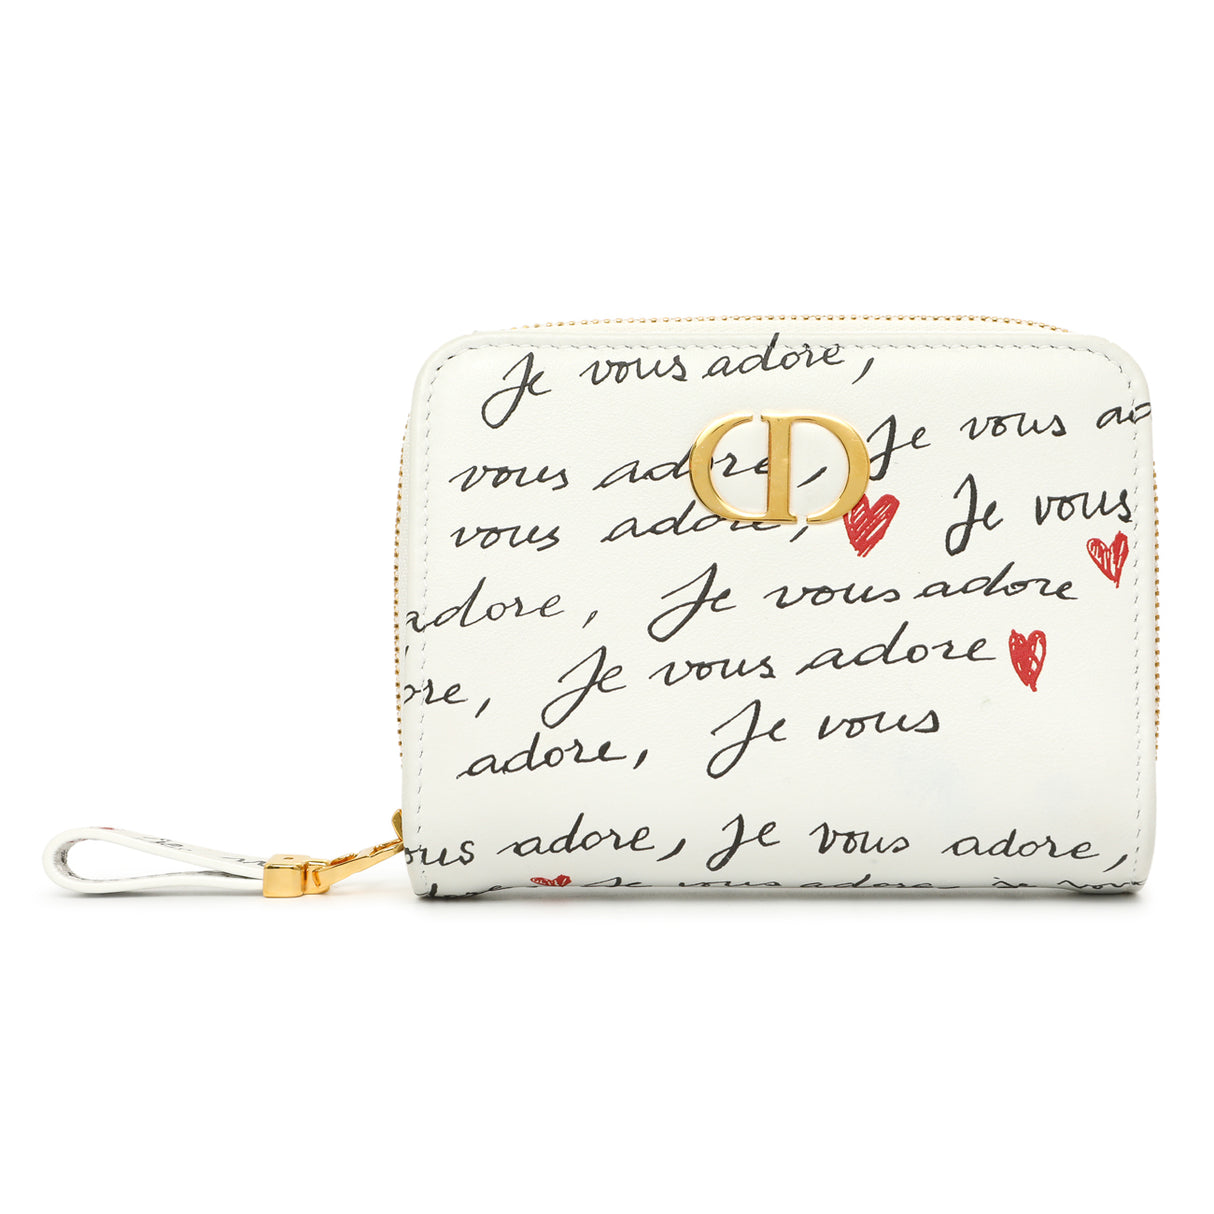 Je vous adore,
vous adore, Je vous ad
CD
vous adore, Je vous
adore, Je vous adore
ore, Je vous adore
adore, Je vous
ous adore, Je vous adore,
Je vous adore je vou